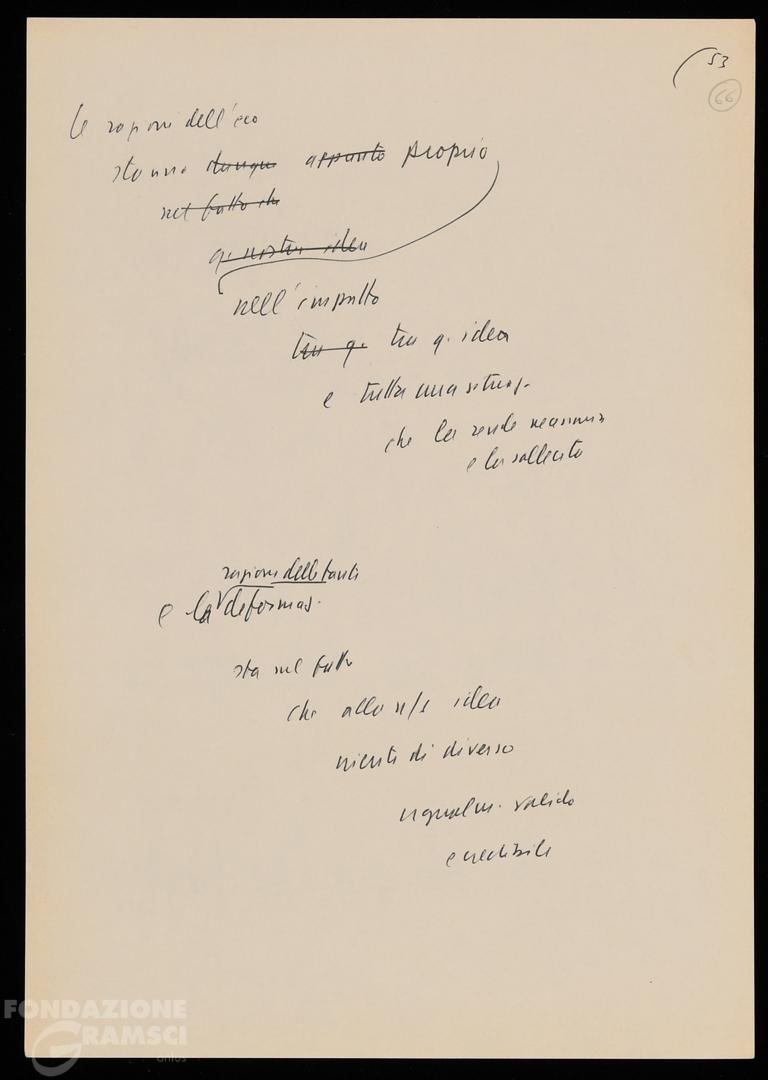 53
66
le ragioni dell'eco
stanno dunque appunto proprio
nel fatto che
q. nostra idea
nell'impatto
tra q. tra q. idea
e tutta una situaz.
che la rende necessaria
e la sollecita
ragione delle tanti
e la deformaz.
sta nel fatto
che alla n/s idea
niente di diverso
ugualm. valido
e credibile
FONDAZIONE
GRAMSCI
onlus